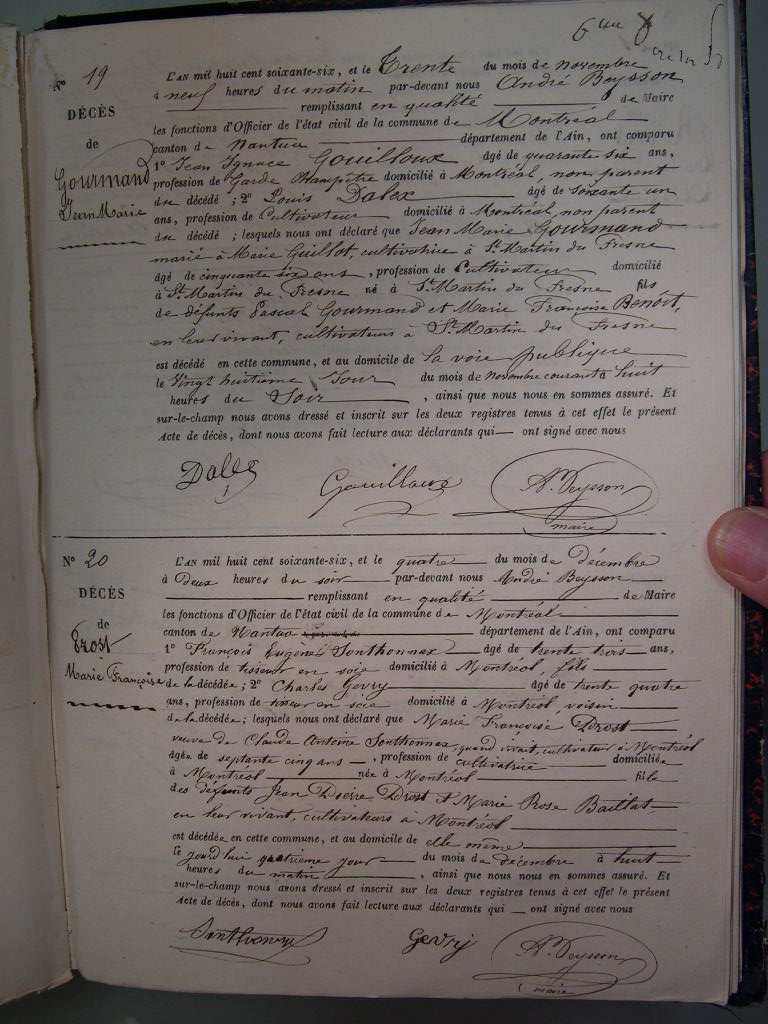 6
N° 19
L'AN mil huit cent soixante-six, et le Trente du mois de novembre
à neuf heures du matin par-devant nous André Beysson
remplissant en qualité de Maire
DÉCÈS
les fonctions d'Officier de l'état civil de la commune de Montréal
de
canton de Nantua département de l'Ain, ont comparu
Gourmand
1° Jean Ignace Gouilloux âgé de quarante six ans,
profession de Garde Champêtre domicilié à Montréal, non parent
Jean Marie
du décédé; 2° Louis Dalex âgé de soixante un
ans, profession de Cultivateur domicilié à Montréal, non parent
du décédé; lesquels nous ont déclaré que Jean Marie Gourmand
marié à Marie Guillot, cultivatrice à St Martin du Fresne
âgé de cinquante six ans, profession de Cultivateur domicilié
à St Martin du Fresne né à St Martin du Fresne fils
de défunts Pascal Gourmand et Marie Françoise Benoît,
en leur vivant, cultivateurs à St Martin du Fresne
est décédé en cette commune, et au domicile de la voie publique
le Vingt huitième Jour du mois de novembre courant à huit
heures du Soir, ainsi que nous nous en sommes assuré. Et
sur-le-champ nous avons dressé et inscrit sur les deux registres tenus à cet effet le présent
Acte de décès, dont nous avons fait lecture aux déclarants qui — ont signé avec nous
Dalex Gouilloux A. Beysson
maire
N° 20
L'AN mil huit cent soixante-six, et le quatre du mois de Décembre
à Deux heures du soir par-devant nous André Beysson
DÉCÈS
remplissant en qualité de Maire
les fonctions d'Officier de l'état civil de la commune de Montréal
de
canton de Nantua département de l'Ain, ont comparu
Drost
1° François Eugène Sonthonnax âgé de trente trois ans,
Marie Françoise
profession de tisseur en soie domicilié à Montréal, fils
de la décédée; 2° Charles Gevry âgé de trente quatre
ans, profession de tisseur en soie domicilié à Montréal voisin
de la décédée; lesquels nous ont déclaré que Marie Françoise Drost
veuve de Claude Antoine Sonthonnax, quand vivait, cultivateur à Montréal
âgée de septante cinq ans —, profession de cultivatrice domiciliée
à Montréal née à Montréal fille
des défunts Jean Pierre Drost et Marie Rose Baillat
en leur vivant, cultivateurs à Montréal
est décédée en cette commune, et au domicile de elle même
le jourd'hui quatrième jour du mois de décembre à huit
heures du matin, ainsi que nous nous en sommes assuré. Et
sur-le-champ nous avons dressé et inscrit sur les deux registres tenus à cet effet le présent
Acte de décès, dont nous avons fait lecture aux déclarants qui — ont signé avec nous
Sonthonnax Gevry A. Beysson
maire